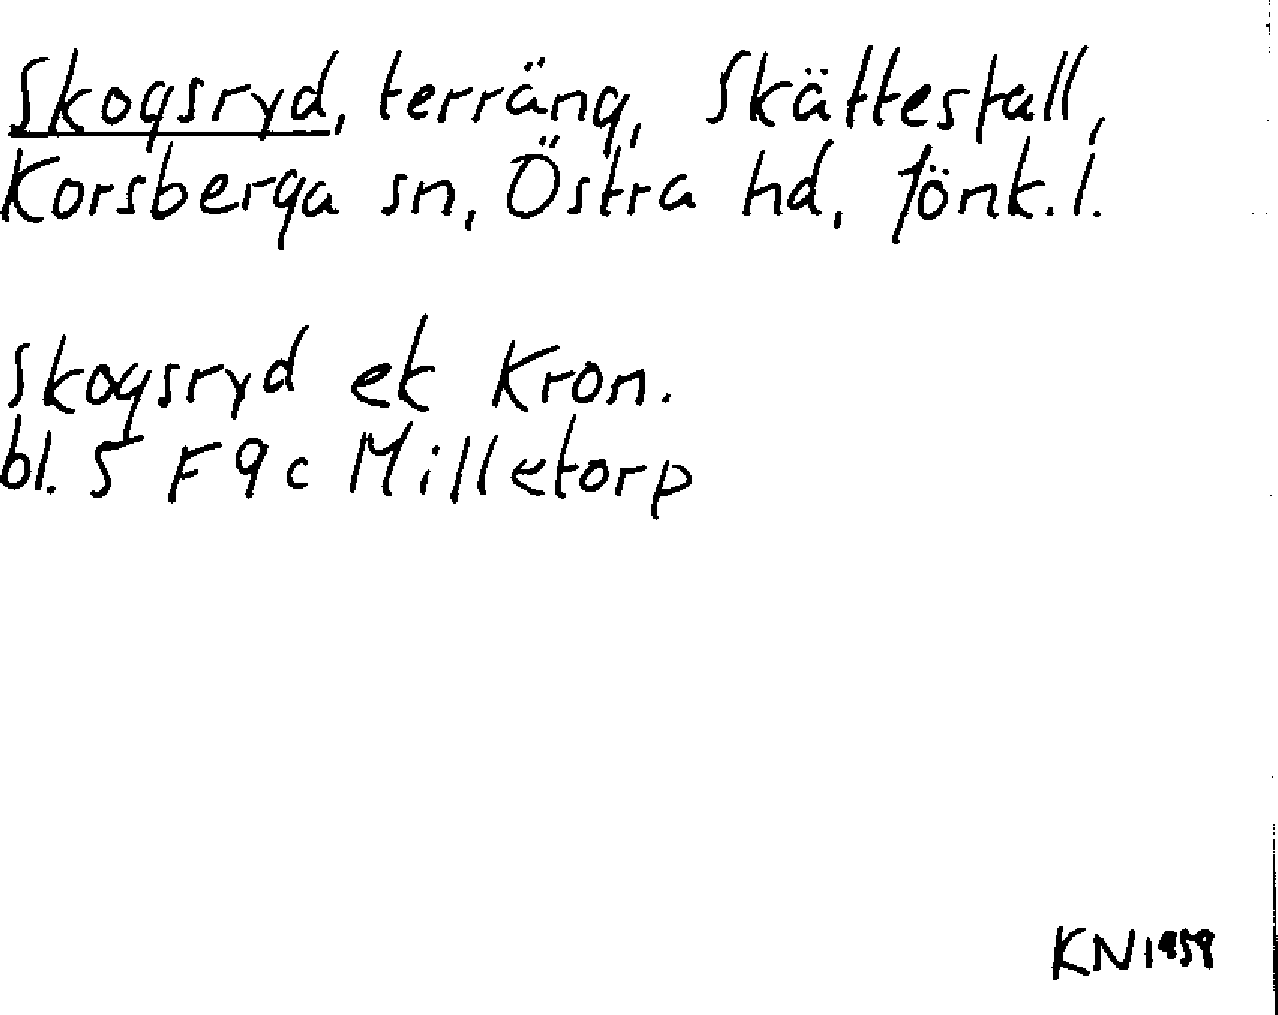 Skogsryd, terräng, Skättestall,
Korsberga sn, Östra hd, Jönk.l.
Skogsryd ek Kron.
bl. 5 F 9 c Milletorp
KN 1959